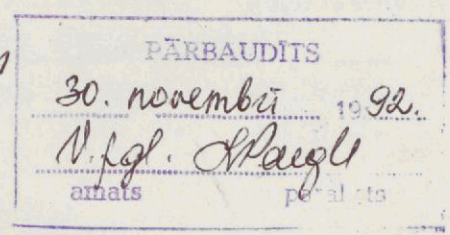 PĀRBAUDĪTS
30. novembrī 1992.
V.p.gl.
amats paraksts